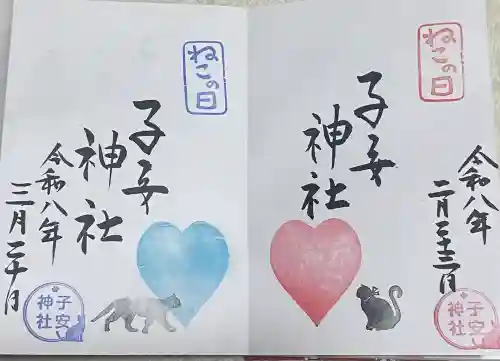 ねこの日
令和八年
二月二十三日
子安
神社
子安
神社
ねこの日
子安
神社
令和八年
三月二十日
子安
神社